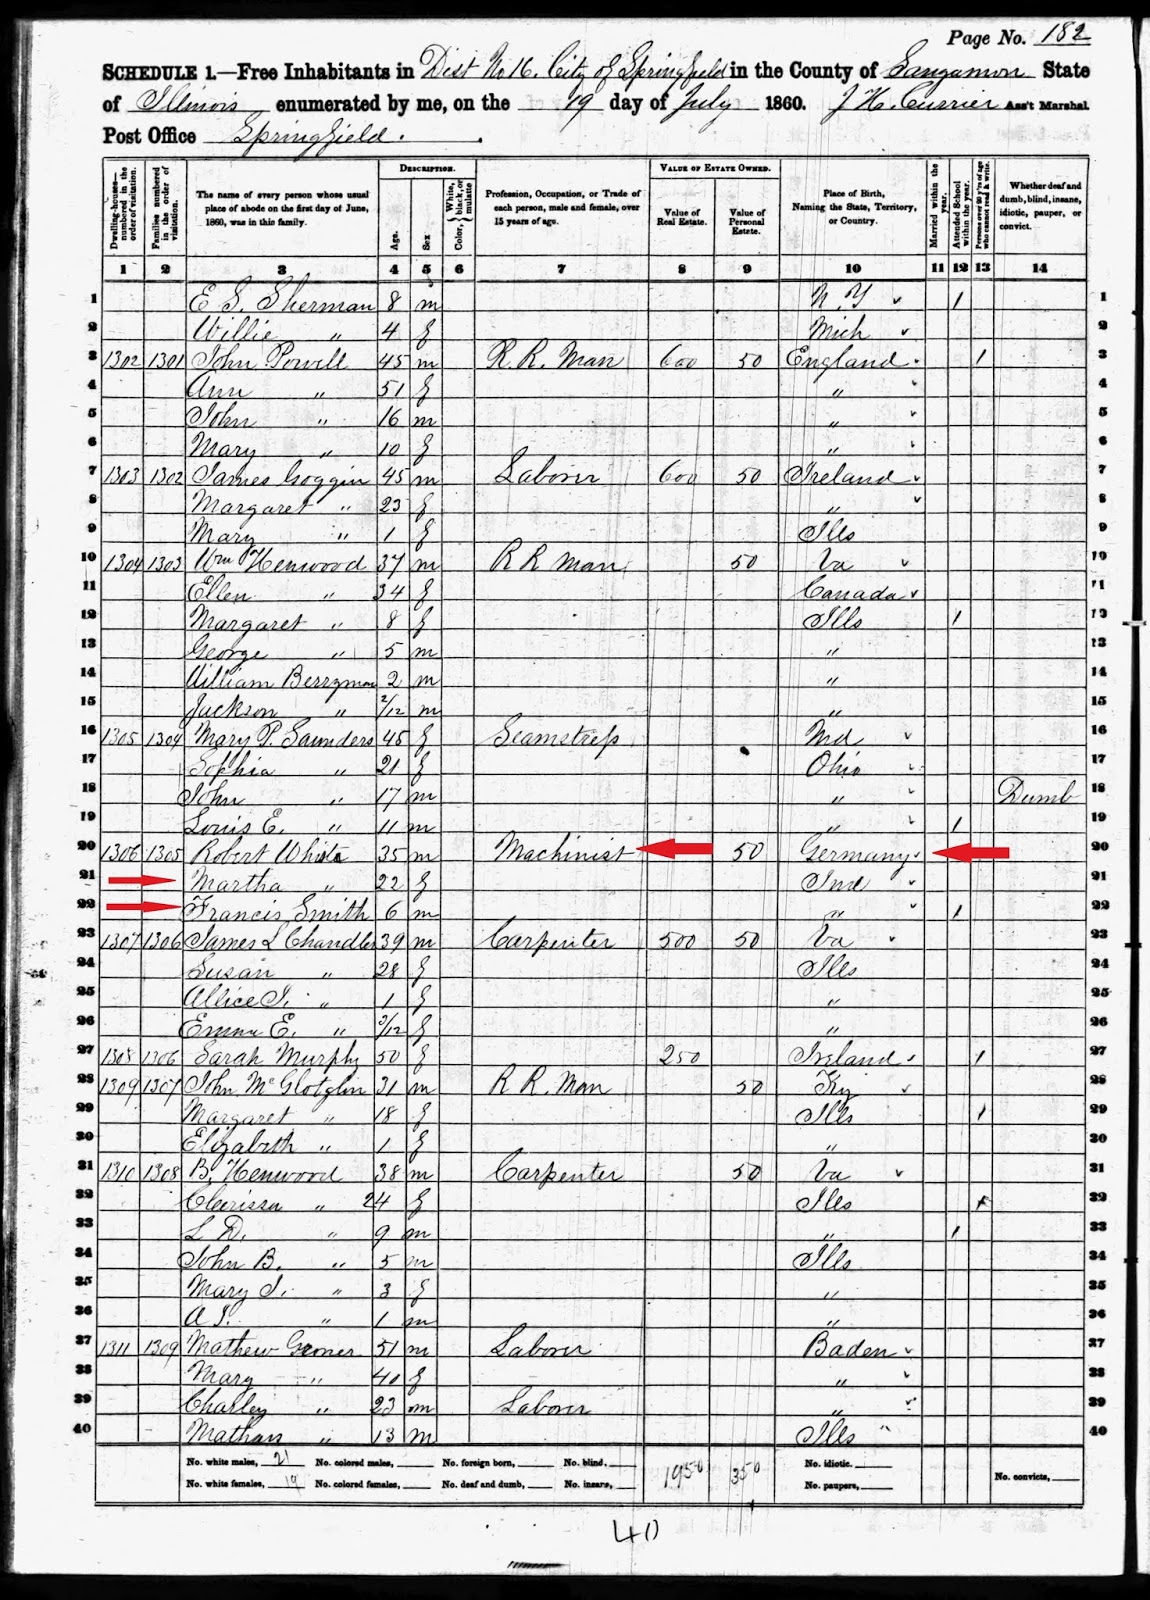 Page No. 182
SCHEDULE 1.—Free Inhabitants in Dist No 16. City of Springfield in the County of Sangamon State
of Illinois enumerated by me, on the 19 day of July 1860. J. H. Currier Ass't Marshal.
Post Office Springfield.
Dwelling-houses—numbered in the order of visitation.
Families numbered in the order of visitation.
The name of every person whose usual place of abode on the first day of June, 1860, was in this family.
DESCRIPTION.
Age.
Sex
Color, White, black, or mulatto
Profession, Occupation, or Trade of each person, male and female, over 15 years of age.
VALUE OF ESTATE OWNED.
Value of Real Estate.
Value of Personal Estate.
Place of Birth, Naming the State, Territory, or Country.
Married within the year.
Attended School within the year.
Persons over 20 y'rs of age who cannot read & write.
Whether deaf and dumb, blind, insane, idiotic, pauper, or convict.
1 2 3 4 5 6 7 8 9 10 11 12 13 14
1 E. S. Sherman 8 m N. Y 1 1
2 Willie " 4 f Mich 2
3 1302 1301 John Powell 45 m R. R. Man 600 50 England 1 3
4 Ann " 51 f " 4
5 John " 16 m " 5
6 Mary " 10 f " 6
7 1303 1302 James Goggin 45 m Laborer 600 50 Ireland 7
8 Margaret " 23 f " 8
9 Mary " 1 f Ills 9
10 1304 1303 Wm Henwood 37 m R R Man 50 Va 10
11 Ellen " 34 f Canada 11
12 Margaret " 8 f Ills 1 12
13 George " 5 m " 13
14 William Berryman 2 m " 14
15 Jackson " 2/12 m " 15
16 1305 1304 Mary P. Saunders 45 f Seamstress Md 16
17 Sophia " 21 f Ohio 17
18 John " 17 m " Dumb 18
19 Louis E. " 11 m " 1 19
20 1306 1305 Robert White 35 m Machinist 50 Germany 20
21 Martha " 22 f Ind 21
22 Francis Smith 6 m " 1 22
23 1307 1306 James L Chandler 39 m Carpenter 500 50 Va 23
24 Susan " 28 f Ills 24
25 Allice J. " 1 f " 25
26 Emma E. " 3/12 f " 26
27 1308 1306 Sarah Murphy 50 f 250 Ireland 1 27
28 1309 1307 John 31 m R R. Man 50 Ky 28
29 Margaret " 18 f Ills 1 29
30 Elizabeth " 1 f " 30
31 1310 1308 B. Henwood 38 m Carpenter 50 Va 31
32 Clarissa " 24 f Ills 32
33 L D. " 9 m " 1 33
34 John B. " 5 m Ills 34
35 Mary J. " 3 f " 35
36 A J. " 1 m " 36
37 1311 1309 Mathew 51 m Laborer Baden 37
38 Mary " 40 f " 38
39 Charley " 23 m Laborer " 39
40 Mathias " 13 m Ills 40
No. white males, 21 No. colored males, No. foreign born, No. blind, 1950 350 No. idiotic,
No. white females, 19 No. colored females, No. deaf and dumb, No. insane, No. paupers, No. convicts,
40